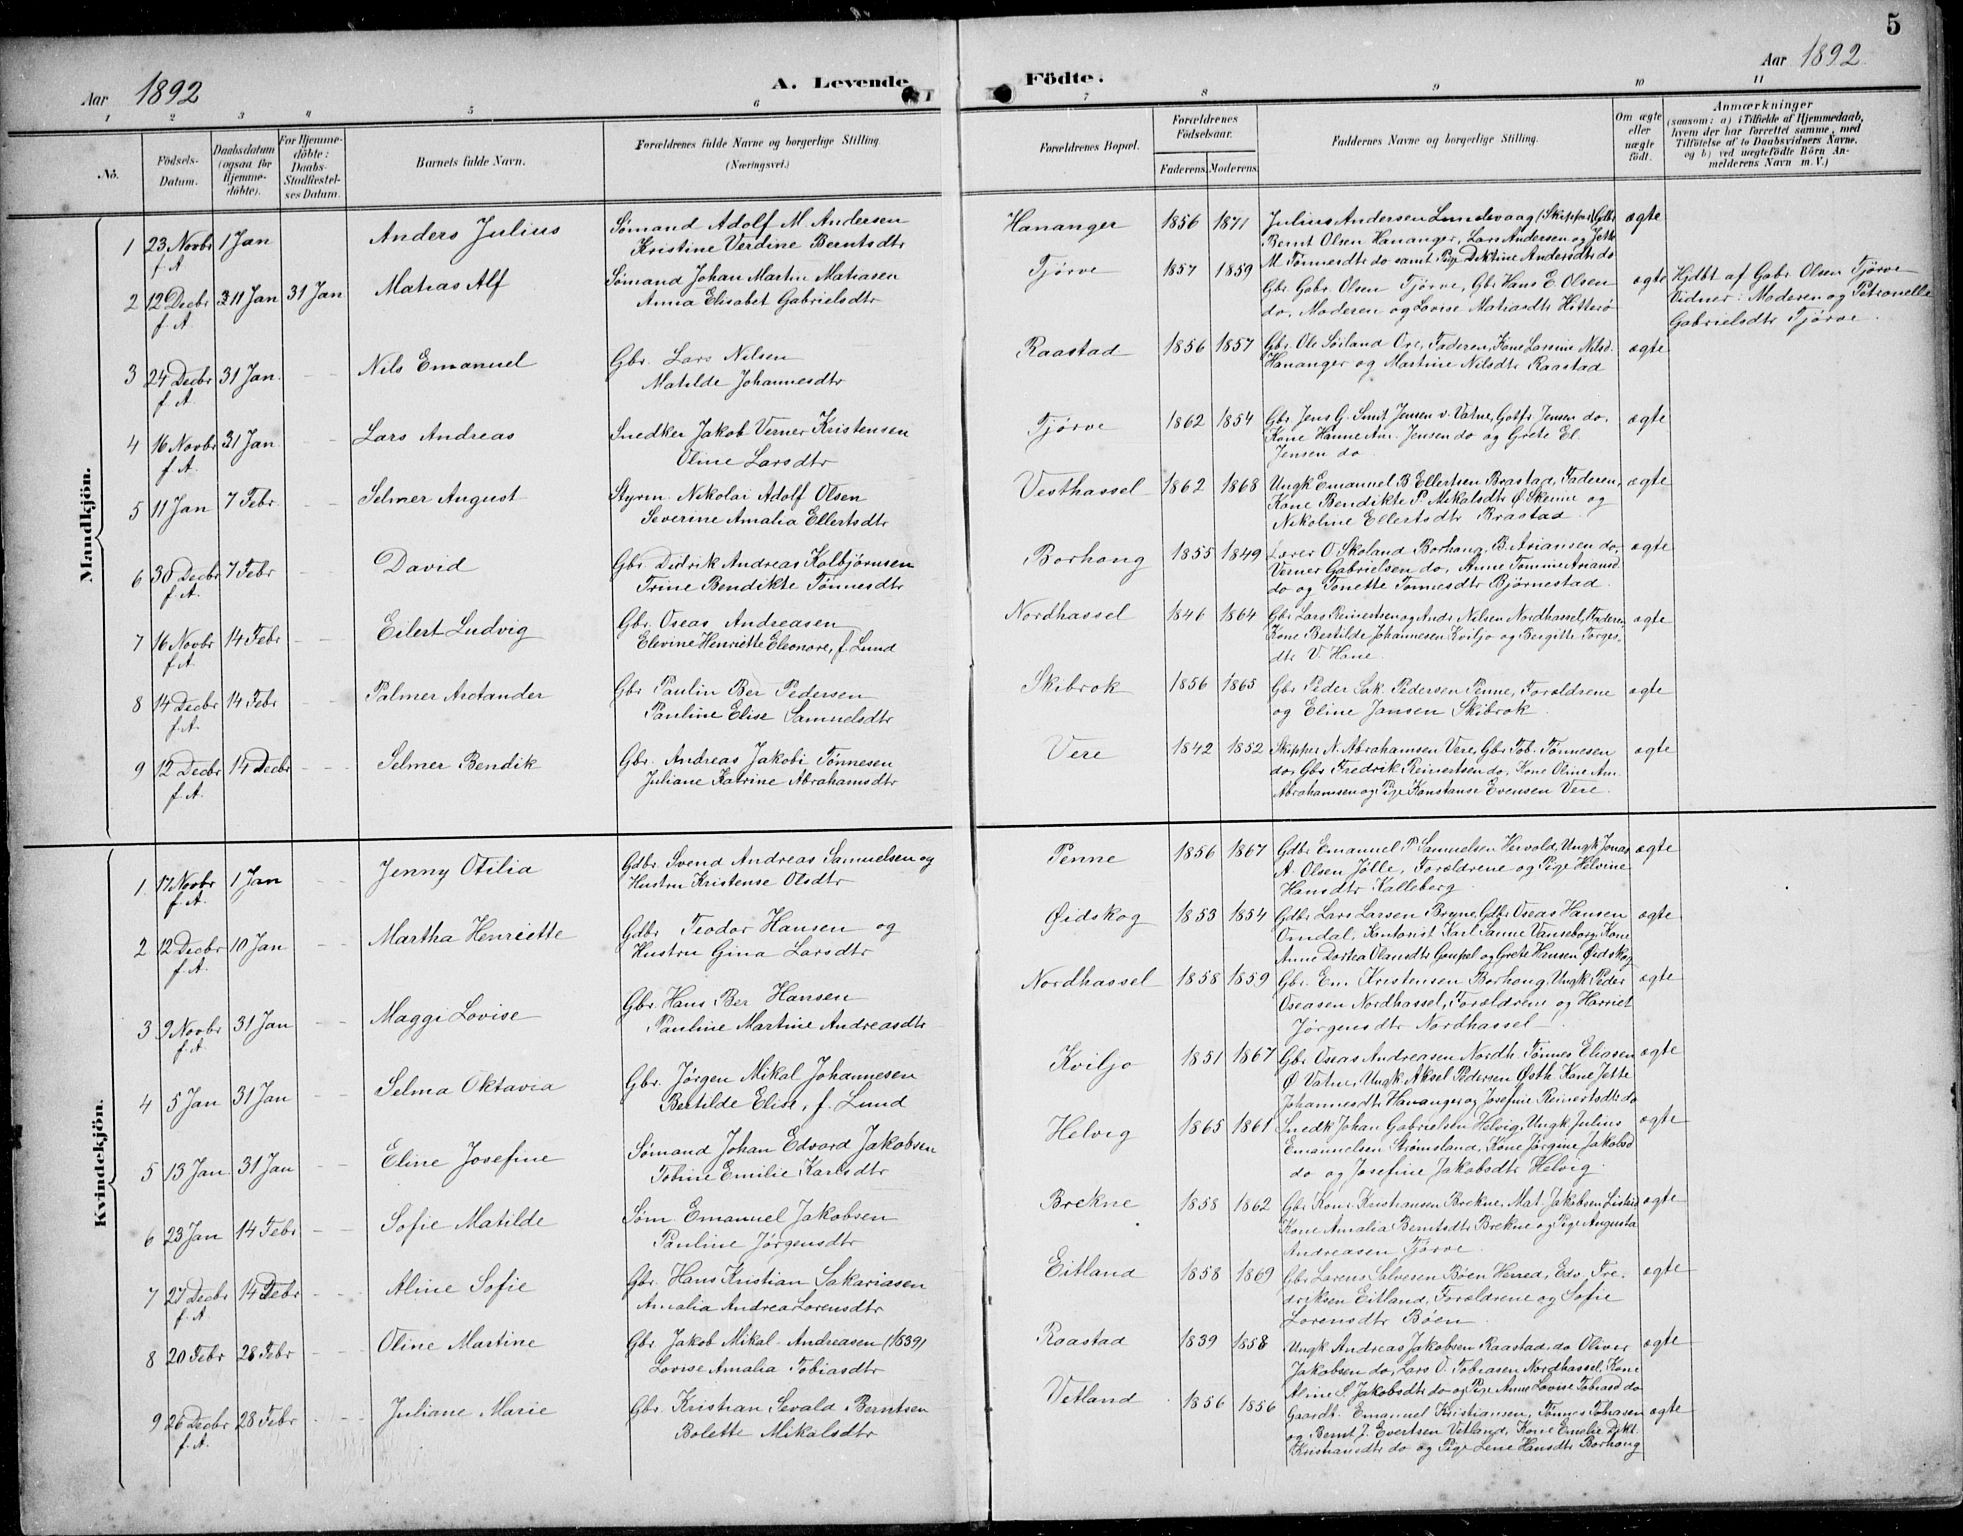 5
Aar 1892
A. Levende Födte.
Aar 1892
1 2 3 4 5 6 7 8 9 10 11
No. Födsels-Datum. Daabsdatum (ogsaa for Hjemme-döbte). For Hjemme-döbte: Daabs-Stadfæstel-ses Datum. Barnets fulde Navn. Forældrenes fulde Navne og borgerlige Stilling (Næringsvei.) Forældrenes Bopæl. Forældrenes Födselsaar. Faderens. Moderens. Faddernes Navne og borgerlige Stilling. Om ægte eller uægte födt. Anmærkninger (saasom: a) i Tilfælde af Hjemmedaab, hvem der har forrettet samme, med Tilföielse af to Daabsvidners Navne, og b) ved uægtefödte Börn An-melderens Navn m. V.)
Mandkjön.
1 23 Novbr f. A. 1 Jan Anders Julius Sømand Adolf M. Andersen
Kristine Verdine Berntsdtr
Hananger 1856 1871 Julius Andersen Lundevaag (Skipper) Gbr
Bernt Olsen Hananger, Lars Andersen og Jette
M Tønnesdtr do samt Pige Andersdtr do ægte
2 12 Decbr f. A 31 Jan 31 Jan Matias Alf Sømand Johan Martin Matiasen
Anna Elisabet Gabrielsdtr
Tjørve 1857 1859 Gbr. Gabr. Olsen Tjørve, Gbr Hans E. Olsen
do, Moderen og Lovise Matiasdtr Hitterø ægte Hjdbt af Gabr Olsen Tjörve
Vidner: Moderen og Petronelle
Gabrielsdtr Tjörve.
3 24 Decbr f. A. 31 Jan. Nils Emanuel Gbr. Lars Nilsen
Matilde Johannesdtr
Raastad 1856 1857 Gbr. Ole Søiland Ore, Faderen, Kone Larsine Nilsd.
Hananger og Martine Nilsdtr Raastad ægte
4 16 Novbr f. A. 31 Jan Lars Andreas Snedker Jakob Verner Kristensen
Oline Larsdtr
Tjørve 1862 1854 Gbr Jens G. Smit Jensen v. Vatne, Gotfr Jensen do.
Kone Hanne Am. Jensen do og Grete El.
Jensen do ægte
5 11 Jan 7 Febr Selmer August Styrm. Nikolai Adolf Olsen
Severine Amalia Ellertsdtr
Vesthassel 1862 1868 Ungk Emanuel B Ellertsen Braastad, Faderen,
Kone Bendikte P. Mikalsdtr Ø. Skeime og
Nikoline Ellertsdtr Braastad. ægte
6 30 Decbr f. A. 7 Febr David Gbr. Didrik Andreas Kolbjørnsen
Trine Bendikte Tønnesdtr
Borhaug 1855 1849 Lærer O. Skoland Borhaug, B. Ariansen do,
Verner Gabrielsen do, Anne Tomine Ariansd
do og Tonette Tønnesdtr Bjørnestad ægte
7 16 Novbr f. A. 14 Febr Eilert Ludvig Gbr. Oseas Andreasen
Elevine Henriette Eleonore, f. Lund
Nordhassel 1846 1864 Gbr Lars Reinertsen og Andr. Nilsen Nordhassel, Faderen
Kone Bertilde Johannesen Kviljo og Bergitte Torges
dtr V. Hane. ægte
8 14 Decbr f. A. 14 Febr Palmer Arctander Gbr Paulin Ber Pedersen
Pauline Elise Samuelsdtr
Skibrok 1856 1865 Gbr Peder Sak. Pedersen Penne, Forældrene
og Eline Jansen Skibrok. ægte
9 12 Decbr f. A. 14 Decbr Selmer Bendik Gbr. Andreas Jakobi Tønnesen
Juliane Katrine Abrahamsdtr
Vere 1842 1852 Skipper N. Abrahamsen Vere, Gbr Tob. Tønnesen
do, Gbr Fredrik Reinertsen do, Kone Oline Am.
Abrahamsen og Pige Konstanse Evensen Vere. ægte
Kvindekjön.
1 17 Novbr f. A. 1 Jan Jenny Otilia Gdbr. Svend Andreas Samuelsen og
Hustru Kristense Olsdtr
Penne 1856 1867 Gdbr Emanuel P Samuelsen Hervold, Ungk Jonas
A. Olsen Jölle, Forældrene og Pige Helvine
Hansdtr Kalleberg. ægte
2 12 Decbr f. A. 10 Jan Martha Henriette Gdbr Teodor Hansen og
Hustru Gina Larsdtr
Øidskog 1853 1854 Gdbr Lars Larsen Bryne, Gdbr Oseas Hansen
Omdal, Kontorist Karl Sanne Vanseborg, Kone
Anne Dortea Olausdtr og Grete Hansen Øidskog ægte
3 9 Novbr f. A. 31 Jan Maggi Lovise Gbr. Hans Ber Hansen
Pauline Martine Andreasdtr
Nordhassel 1858 1859 Gbr. Em. Kristensen Borhaug, Ungk Peder
Oseasen Nordhassel, Forældrene og Harriet
Jørgensdtr Nordhassel ægte
4 5 Jan 31 Jan Selma Oktavia Gbr. Jørgen Mikal Johannesen
Bertilde Elise, f. Lund
Kviljo 1851 1867 Gbr Oseas Andreasen Nordh. Tønnes Eliasen
Ø Vatne, Ungk Aksel Pedersen Østh. Kone Jette
Johannesdtr Hananger og Josefine Reinertsdtr do ægte
5 13 Jan. 31 Jan Eline Josefine Sømand Johan Edvard Jakobsen
Tobine Emilie Karlsdtr
Helvig 1865 1861 Snedk Johan Gabrielsen Helvig, Ungk Julius
Emanuelsen Strømsland, Kone Jørgine Jakobsd
do og Josefine Jakobsdtr Helvig. ægte
6 23 Jan 14 Febr Sofie Matilde Søm Emanuel Jakobsen
Pauline Jørgensdtr
Brekne 1858 1862 Gbr Kone Kristiansen Brekne, Mat. Jakobsen Listeid
Kone Amalia Berntsdtr Brekne og Pige Augusta
Andreasen Tjørve. ægte
7 27 Decbr f. A. 14 Febr Aline Sofie Gbr. Hans Kristian Sakariasen
Amalia Andrea Lorensdtr
Eitland 1858 1869 Gbr Lorens Salvesen Bøen Herred, Edv. Fre-
driksen Eitland, Forældrene og Sofie
Lorensdtr Bøen. ægte
8 20 Febr 28 Febr Oline Martine Gbr Jakob Mikal Andreasen (1839)
Lovise Amalia Tobiasdtr
Raastad 1839 1858 Ungk Andreas Jakobsen Raastad, do Oliver
Jakobsen do, Lars O. Tobiasen Nordhassel, Kone
Aline S. Jakobsdtr do og Pige Anne Lovise Tobiasd do ægte
9 26 Decbr f. A. 28 Febr Juliane Marie Gbr. Kristian Sevald Berntsen
Bolette Mikalsdtr
Vetland 1856 1856 Gaardbr. Emanuel Kristiansen, Tønnes Tobiasen
og Bernt J. Evertsen Vetland, Kone Emelie
Kristiansdtr do og Pige Lene Hansdtr Borhaug ægte